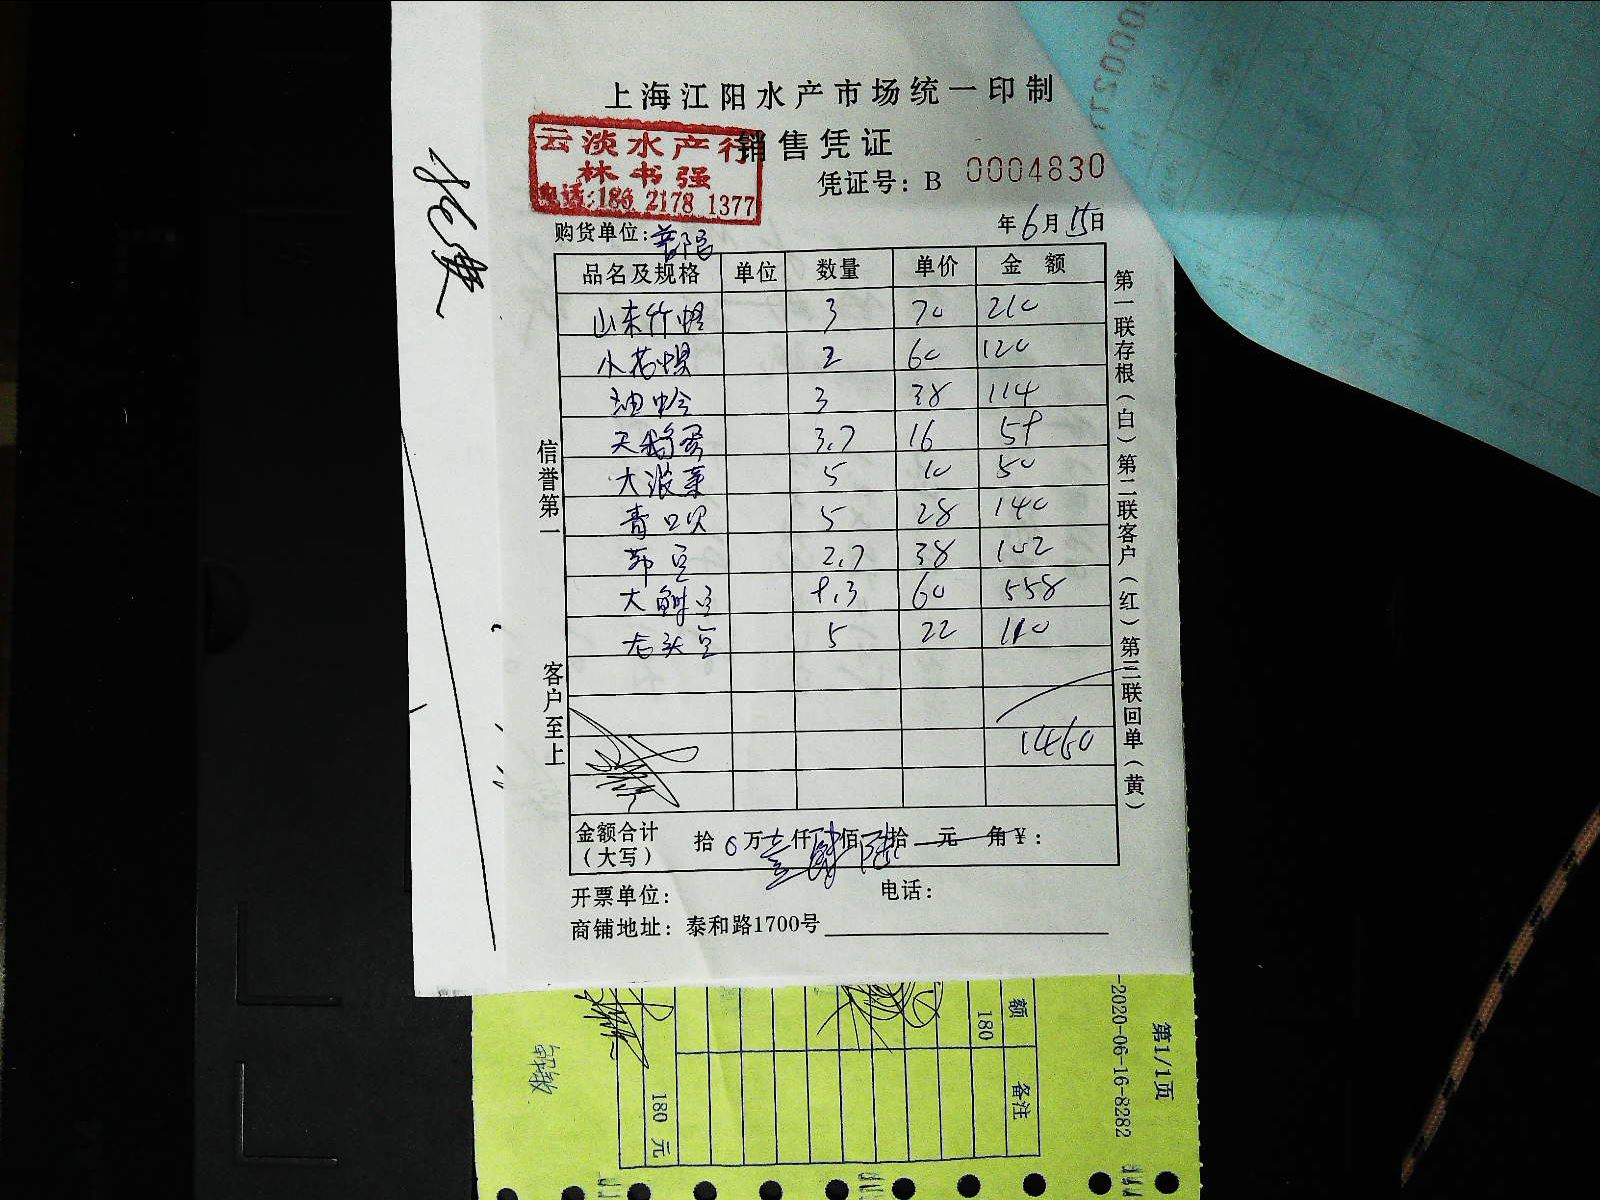 上海江阳水产市场统一印制
销售凭证
云淡水产行
林书强
电话:186 2178 1377
凭证号：B 0004830
年6月15日
购货单位:
品名及规格 单位 数量 单价 金额
山东竹蛏 3 70 210
小花螺 2 60 120
油蛤 3 38 114
天鹅蛋 3.7 16 59
大波菜 5 10 50
青口贝 5 28 140
2.7 38 102
大 9.3 60 558
老头 5 22 110
1460
金额合计（大写） 拾0万壹仟肆佰陆拾 元 角¥：
开票单位： 电话：
商铺地址：泰和路1700号
信誉第一
客户至上
第一联存根（白）第二联客户（红）第三联回单（黄）
额 备注
180
180 元
第1/1页
-2020-06-16-8282